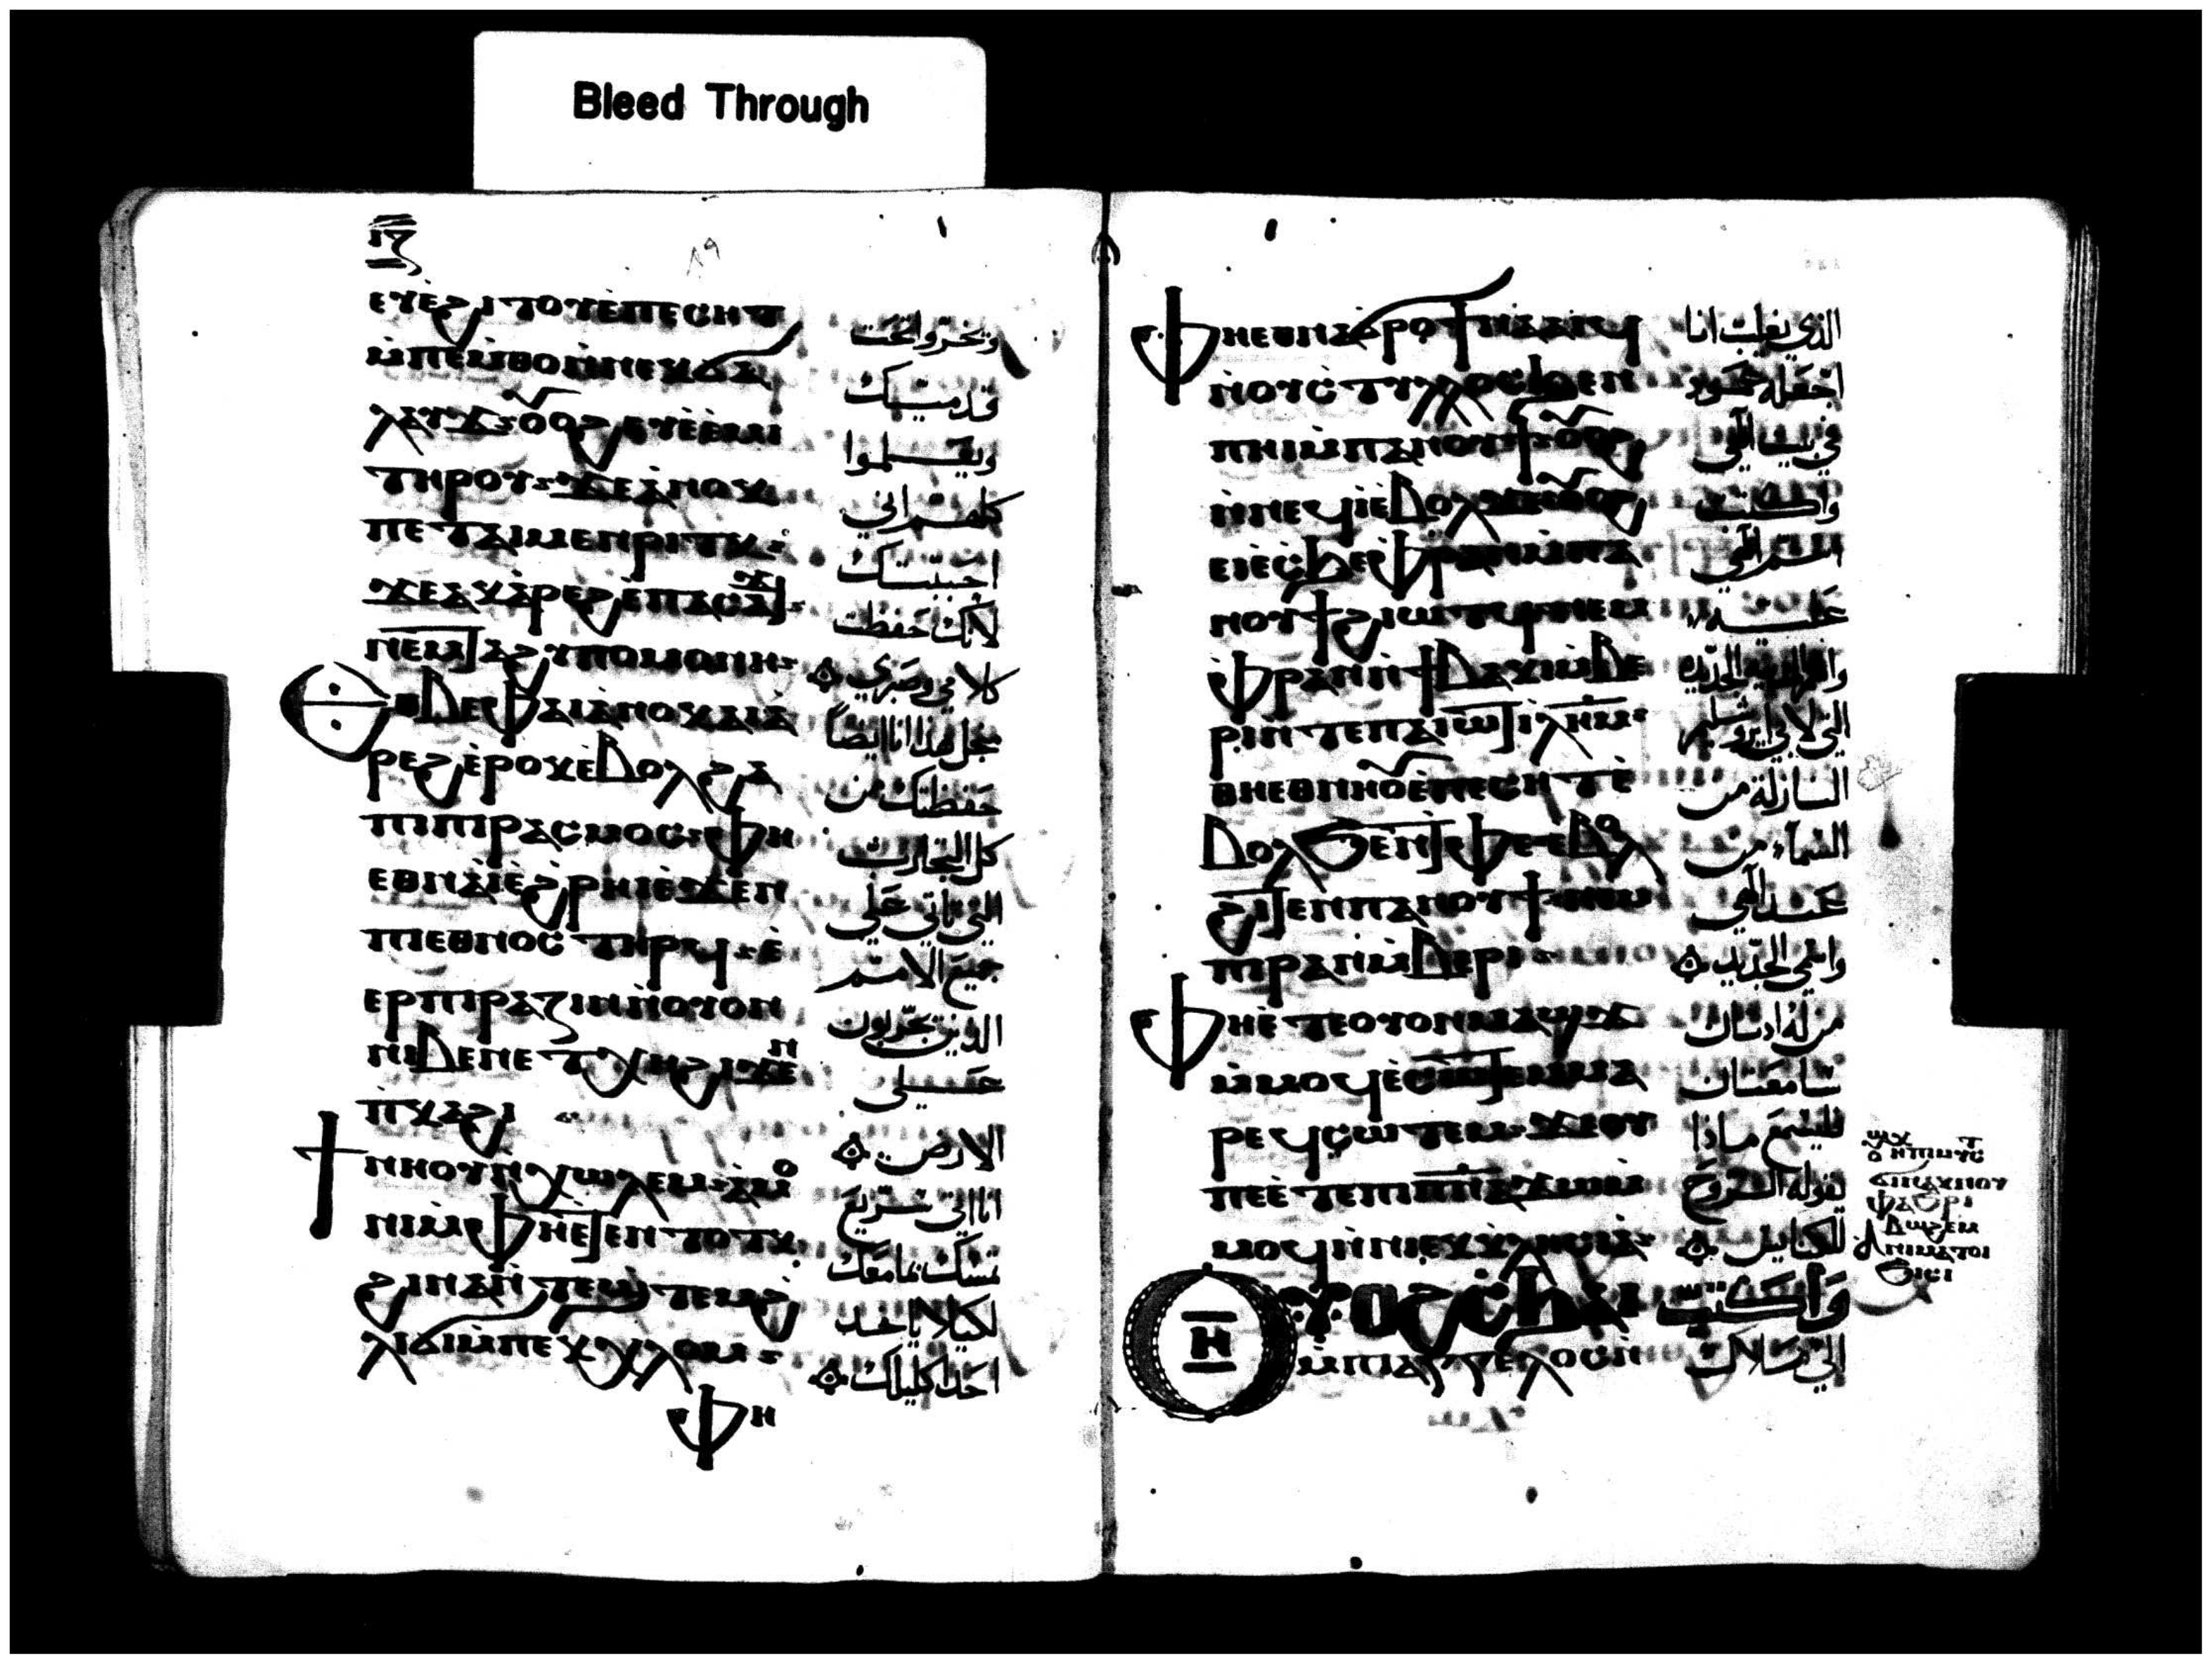 Bleed Through
ⲓⲍ
ⲉⲩⲉ̀ϩⲓⲧⲟⲩⲉ̀ⲡⲉⲥⲏⲧ
ⲙ̀ⲡⲉⲙ̀ⲑⲟⲛ̀ⲛⲉⲕϭⲁ
ⲗⲁⲩϫ ⲟⲩⲟϩ ⲉⲩⲉ̀ⲉ̀ⲙⲓ
ⲧⲏⲣⲟⲩ ϫⲉⲁ̀ⲛⲟⲕ
ⲡⲉⲧⲁⲓⲙⲉⲛⲣⲓⲧⲕ
ϫⲉⲁⲕⲁ̀ⲣⲉϩⲉ̀ⲡⲁⲥⲁϫⲓ
ⲛⲉⲙⲧⲁϩⲩⲡⲟⲙⲟⲛⲏ
ⲉⲑⲃⲉⲫⲁⲓⲁ̀ⲛⲟⲕⲁⲓⲁ̀
ⲣⲉϩⲉ̀ⲣⲟⲕⲉ̀ⲃⲟⲗϩⲁ
ⲡⲓⲡⲓⲣⲁⲥⲙⲟⲥ ⲫⲏ
ⲉⲑⲛⲁⲓ̀ⲉ̀ϩⲣⲏⲓⲉ̀ϫⲉⲛ
ⲡⲓⲉⲑⲛⲟⲥ ⲧⲏⲣϥ ⲉ̀
ⲉⲣⲡⲓⲣⲁⲍⲓⲛⲛ̀ⲟⲩⲟⲛ
ⲛⲓⲃⲉⲛⲉⲧⲭⲏϩⲓϫⲉⲛ
ⲡⲕⲁϩⲓ
ϯⲛⲏⲟⲩⲛ̀ⲭⲱⲗⲉⲙ ⲁ̀ⲙⲟ
ⲛⲓⲙ̀ⲫⲏⲉ̀ⲧⲉⲛⲧⲟⲧⲕ
ϩⲓⲛⲁⲛ̀ⲧⲉϣⲧⲉⲙϩ̀
ⲗⲓϭⲓⲙ̀ⲡⲉⲕⲭⲗⲟⲙ
ⲫⲏ
وتخرّوا تحت
قدميك
ويعلموا
كلهم اني
احببتك
لانك حفظت
كلامي وصبري
مجل هذا انا ايضاً
حفظتك من
كل التجارب
التي تاتي على
جميع الامم
الذين يجربون
على
الارض
انا اتي سريع
تمسك بما معك
لكيلا ياخد
احدا كليلك
ⲫⲏⲉⲑⲛⲁϭⲣⲟϯⲛⲁⲁⲓϥ
ⲛ̀ⲟⲩⲥⲧⲩⲗⲗⲟⲥϧⲉⲛ
ⲡⲏⲓⲙ̀ⲡⲁⲛⲟⲩϯ ⲟⲩⲟϩ
ⲛ̀ⲛⲉϥⲓ̀ⲉ̀ⲃⲟⲗ ⲟⲩⲟϩ
ⲉⲓⲉ̀ⲥϧⲉⲫ̀ⲣⲁⲛⲙ̀ⲡⲁ
ⲛⲟⲩϯϩⲓⲱⲧϥ ⲛⲉⲙ
ⲫ̀ⲣⲁⲛⲛ̀ϯⲃⲁⲕⲓⲙ̀ⲃⲉ
ⲣⲓ ⲛ̀ⲧⲉⲡⲁⲓⲱⲧ ⲓⲗⲏⲙ
ⲑⲏⲉⲑⲛⲏⲟⲩⲉ̀ⲡⲉⲥⲏⲧⲉ̀
ⲃⲟⲗϧⲉⲛⲧⲫⲉ ⲉ̀ⲃⲟⲗ
ϩⲓⲧⲉⲛⲡⲁⲛⲟⲩϯ ⲛⲉⲙ
ⲡⲓⲣⲁⲛⲙ̀ⲃⲉⲣⲓ
ⲫⲏⲉ̀ⲧⲉⲟⲩⲟⲛⲙⲁϣϫ
ⲙ̀ⲙⲟϥⲉ̀ⲥⲱⲧⲉⲙⲙⲁ
ⲣⲉϥⲥⲱⲧⲉⲙ ϫⲉⲟⲩ
ⲡⲉⲉ̀ⲧⲉⲡⲓⲡⲛⲁϫⲱⲙ̀
ⲙⲟϥⲛ̀ⲛⲓⲉⲕⲕⲗⲏⲥⲓⲁ
ⲏ ⲟⲩⲟϩ ⲥϧⲁⲓ
ⲙ̀ⲡⲓⲁⲅⲅⲉⲗⲟⲥⲛ̀
الذي يغلب انا
اجعله عمود
في بيت الهي
واكتب
اسم الهي
عليه
التي لابي يروشليم
النازلة من
السماء من
عند الهي
واسمي الجديد
من له ادنان
سامعتان
فليسمع ماذا
يقوله الروح
للكنايس
واكتب
الي ملاك